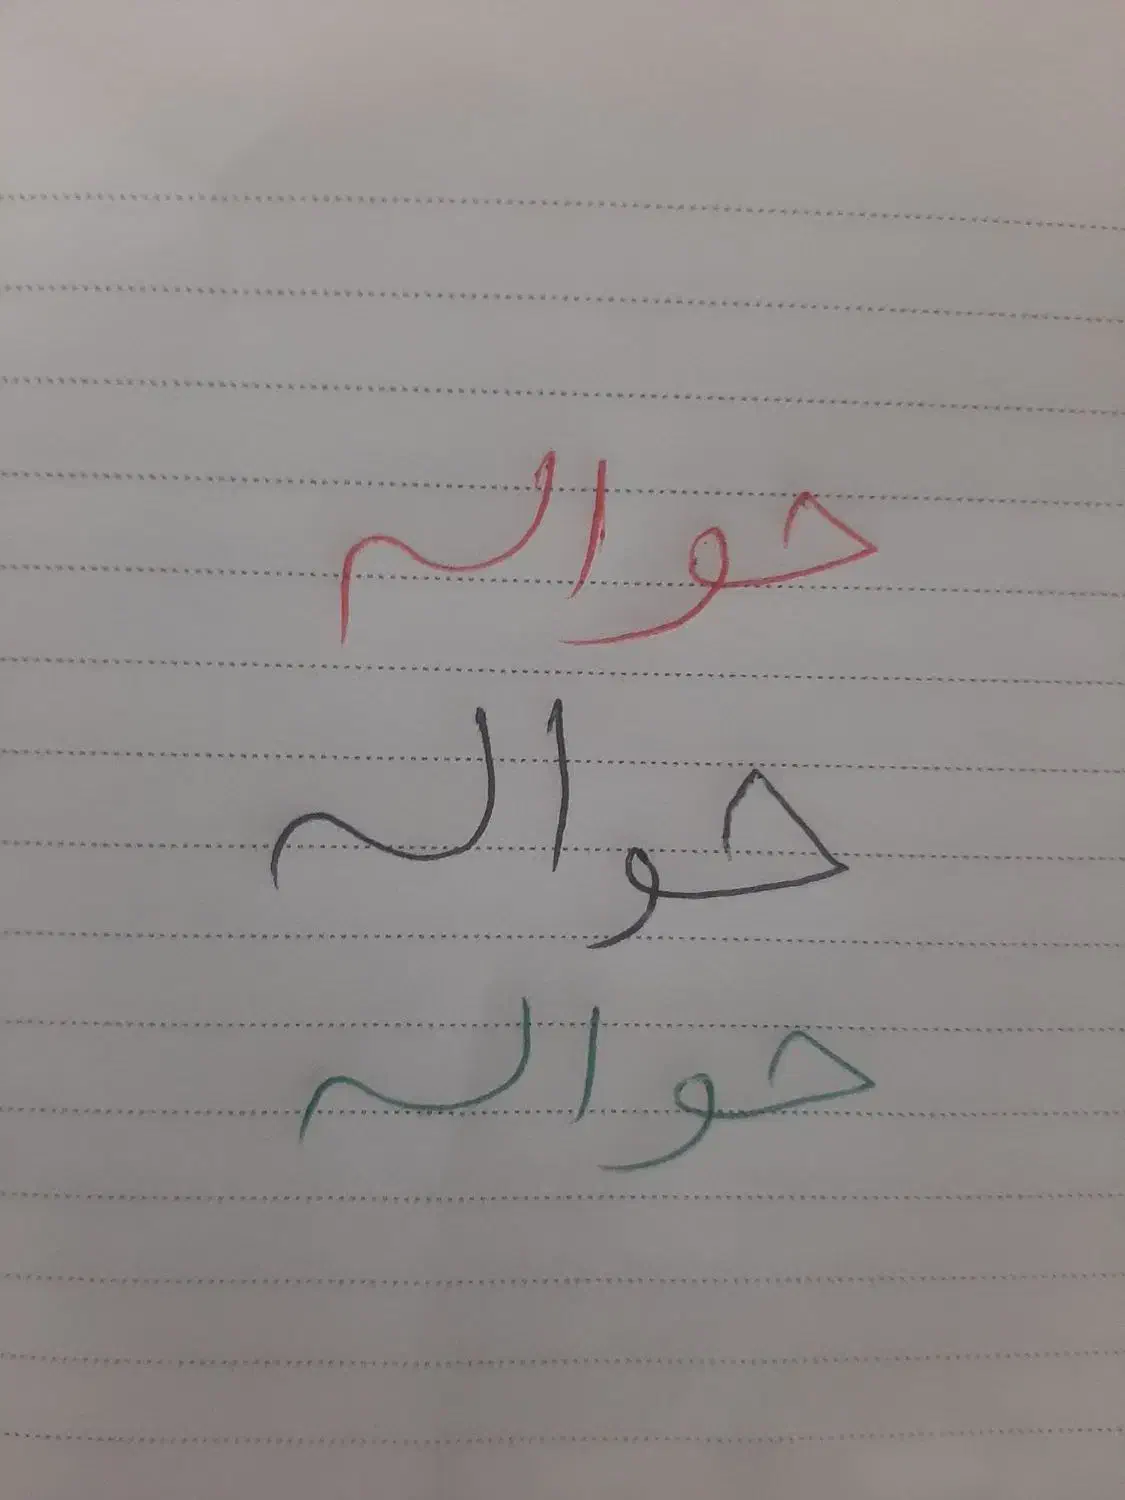 حواله
حواله
حواله